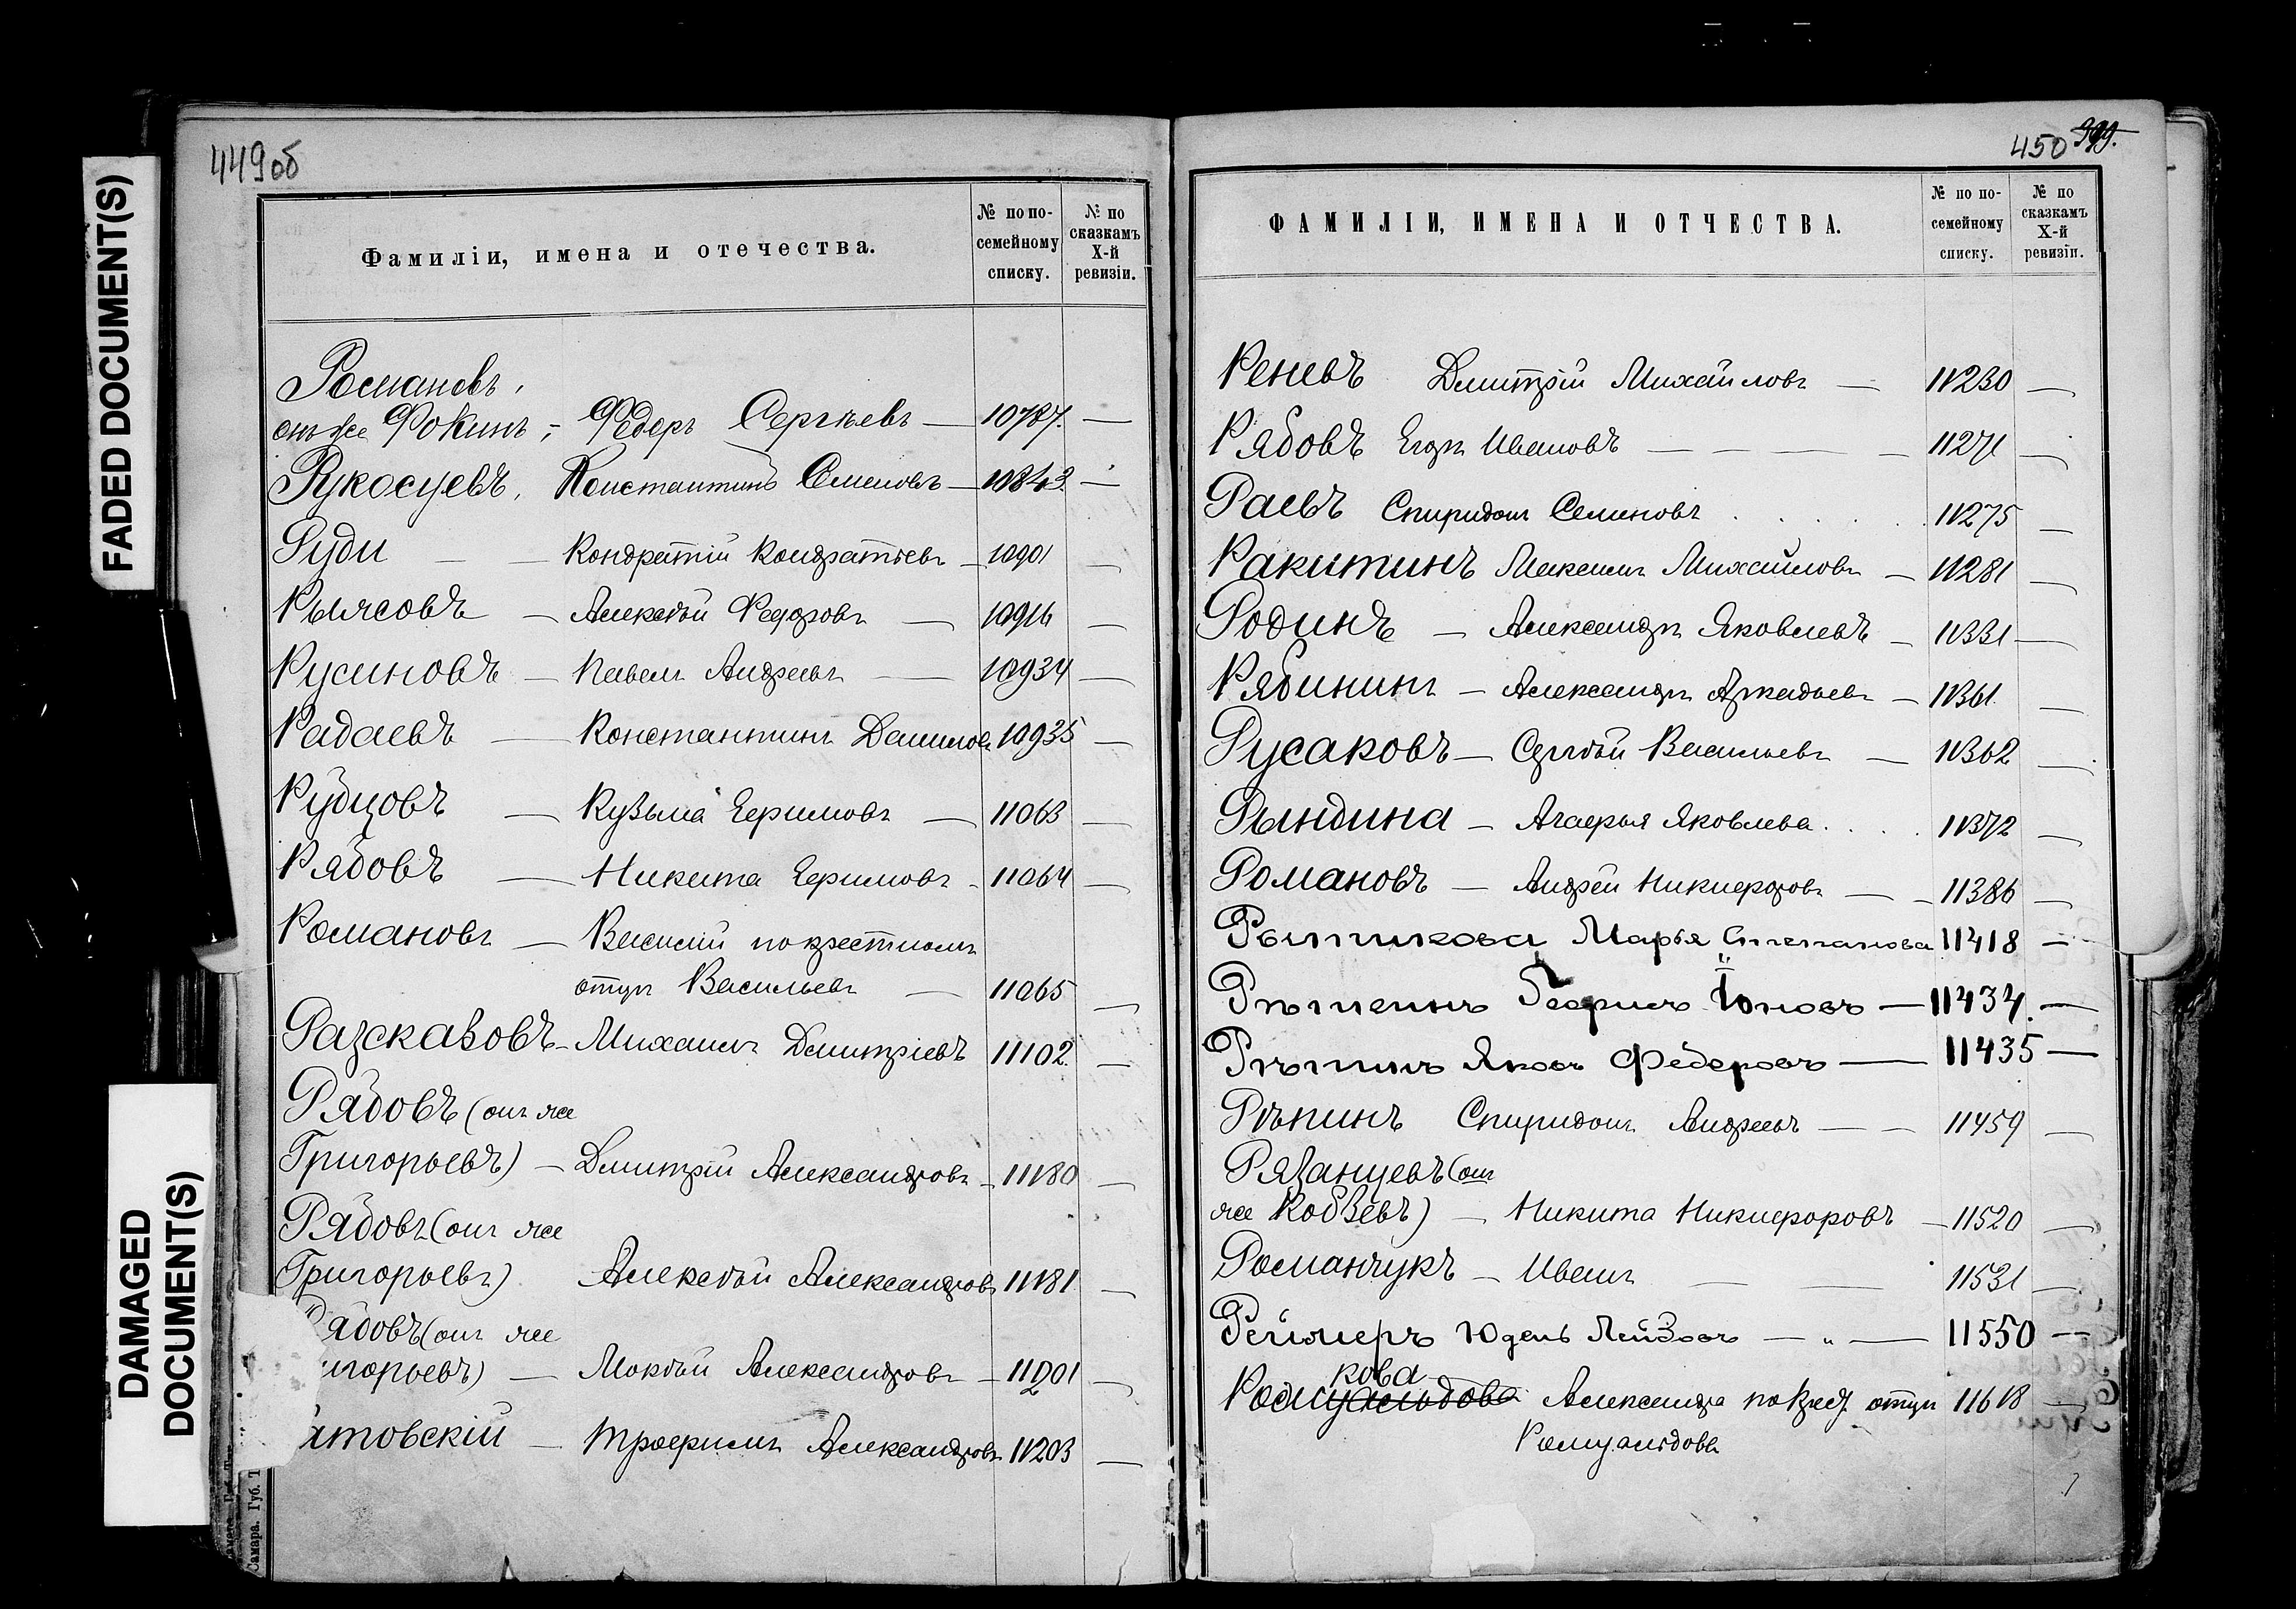 FADED DOCUMENT(S)
DAMAGED
DOCUMENT(S)
449об
Фамиліи, имена и отечества.
№ по по-
семейному
списку.
№ по
сказкамъ
X-й
ревизіи.
Романовъ,
онъ же Фокинъ, - Федоръ Сергѣевъ — 10787. —
Рукосуевъ, Константинъ Семеновъ — 10843. —
Руди — — Кондратій Кондратьевъ — 10901 —
— Алексѣй Федоровъ — 10916 —
Русиновъ — Павелъ Андреевъ — 10934 —
Радаевъ — Константинъ Даниловъ 10935 —
Рубцовъ — Кузьма Ефимовъ — 11063 —
Рябовъ — Никита Ефимовъ - 11064 —
Романовъ — Василій по крестномъ
отцу Васильевъ — 11065 —
Разсказовъ - Михаилъ Дмитріевъ 11102. —
Рябовъ (онъ же
Григорьевъ) — Дмитрій Александровъ - 11180 —
Рябовъ (онъ же
Григорьевъ) Алексѣй Александровъ 11181 —
Рябовъ (онъ же
игорьевъ) — Мокѣй Александровъ — 11201 —
атовскій — Трофимъ Александровъ 11203 —
Самара. Губ. Т
450 399.
ФАМИЛІИ, ИМЕНА И ОТЧЕСТВА.
№ по по-
семейному
списку.
№ по
сказкамъ
X-й
ревизіи.
Реневъ Дмитрій Михайловъ — 11230 —
Рябовъ Егоръ Ивановъ — — — — 11271 —
Раевъ Спиридонъ Семеновъ . . . . . . 11275 —
Ракитинъ Максимъ Михайловъ — 11281 —
Родинъ — Александръ Яковлевъ — 11331 —
Рябининъ — Александръ Аркадьевъ — 11361. —
Русаковъ — Сергѣй Васильевъ — 11362 —
Рындина — Агафья Яковлева. . . . 11372 —
Романовъ — Андрей Никифоровъ — - 11386 —
Марья Степанова 11418 —
Іоновъ — 11434. —
Яковъ Федоровъ — 11435 —
Рѣпинъ Спиридонъ Андреевъ — — 11459 —
Рязанцевъ (онъ
же Кобзевъ) — Никита Никифоровъ — 11520 —
Романчукъ — Иванъ — — 11531 —
Реймеръ Юдель Лейзовъ — „ — 11550 —
кова
Ромуальдова Александра по крест. отцу 11618 —
Ромуальдова